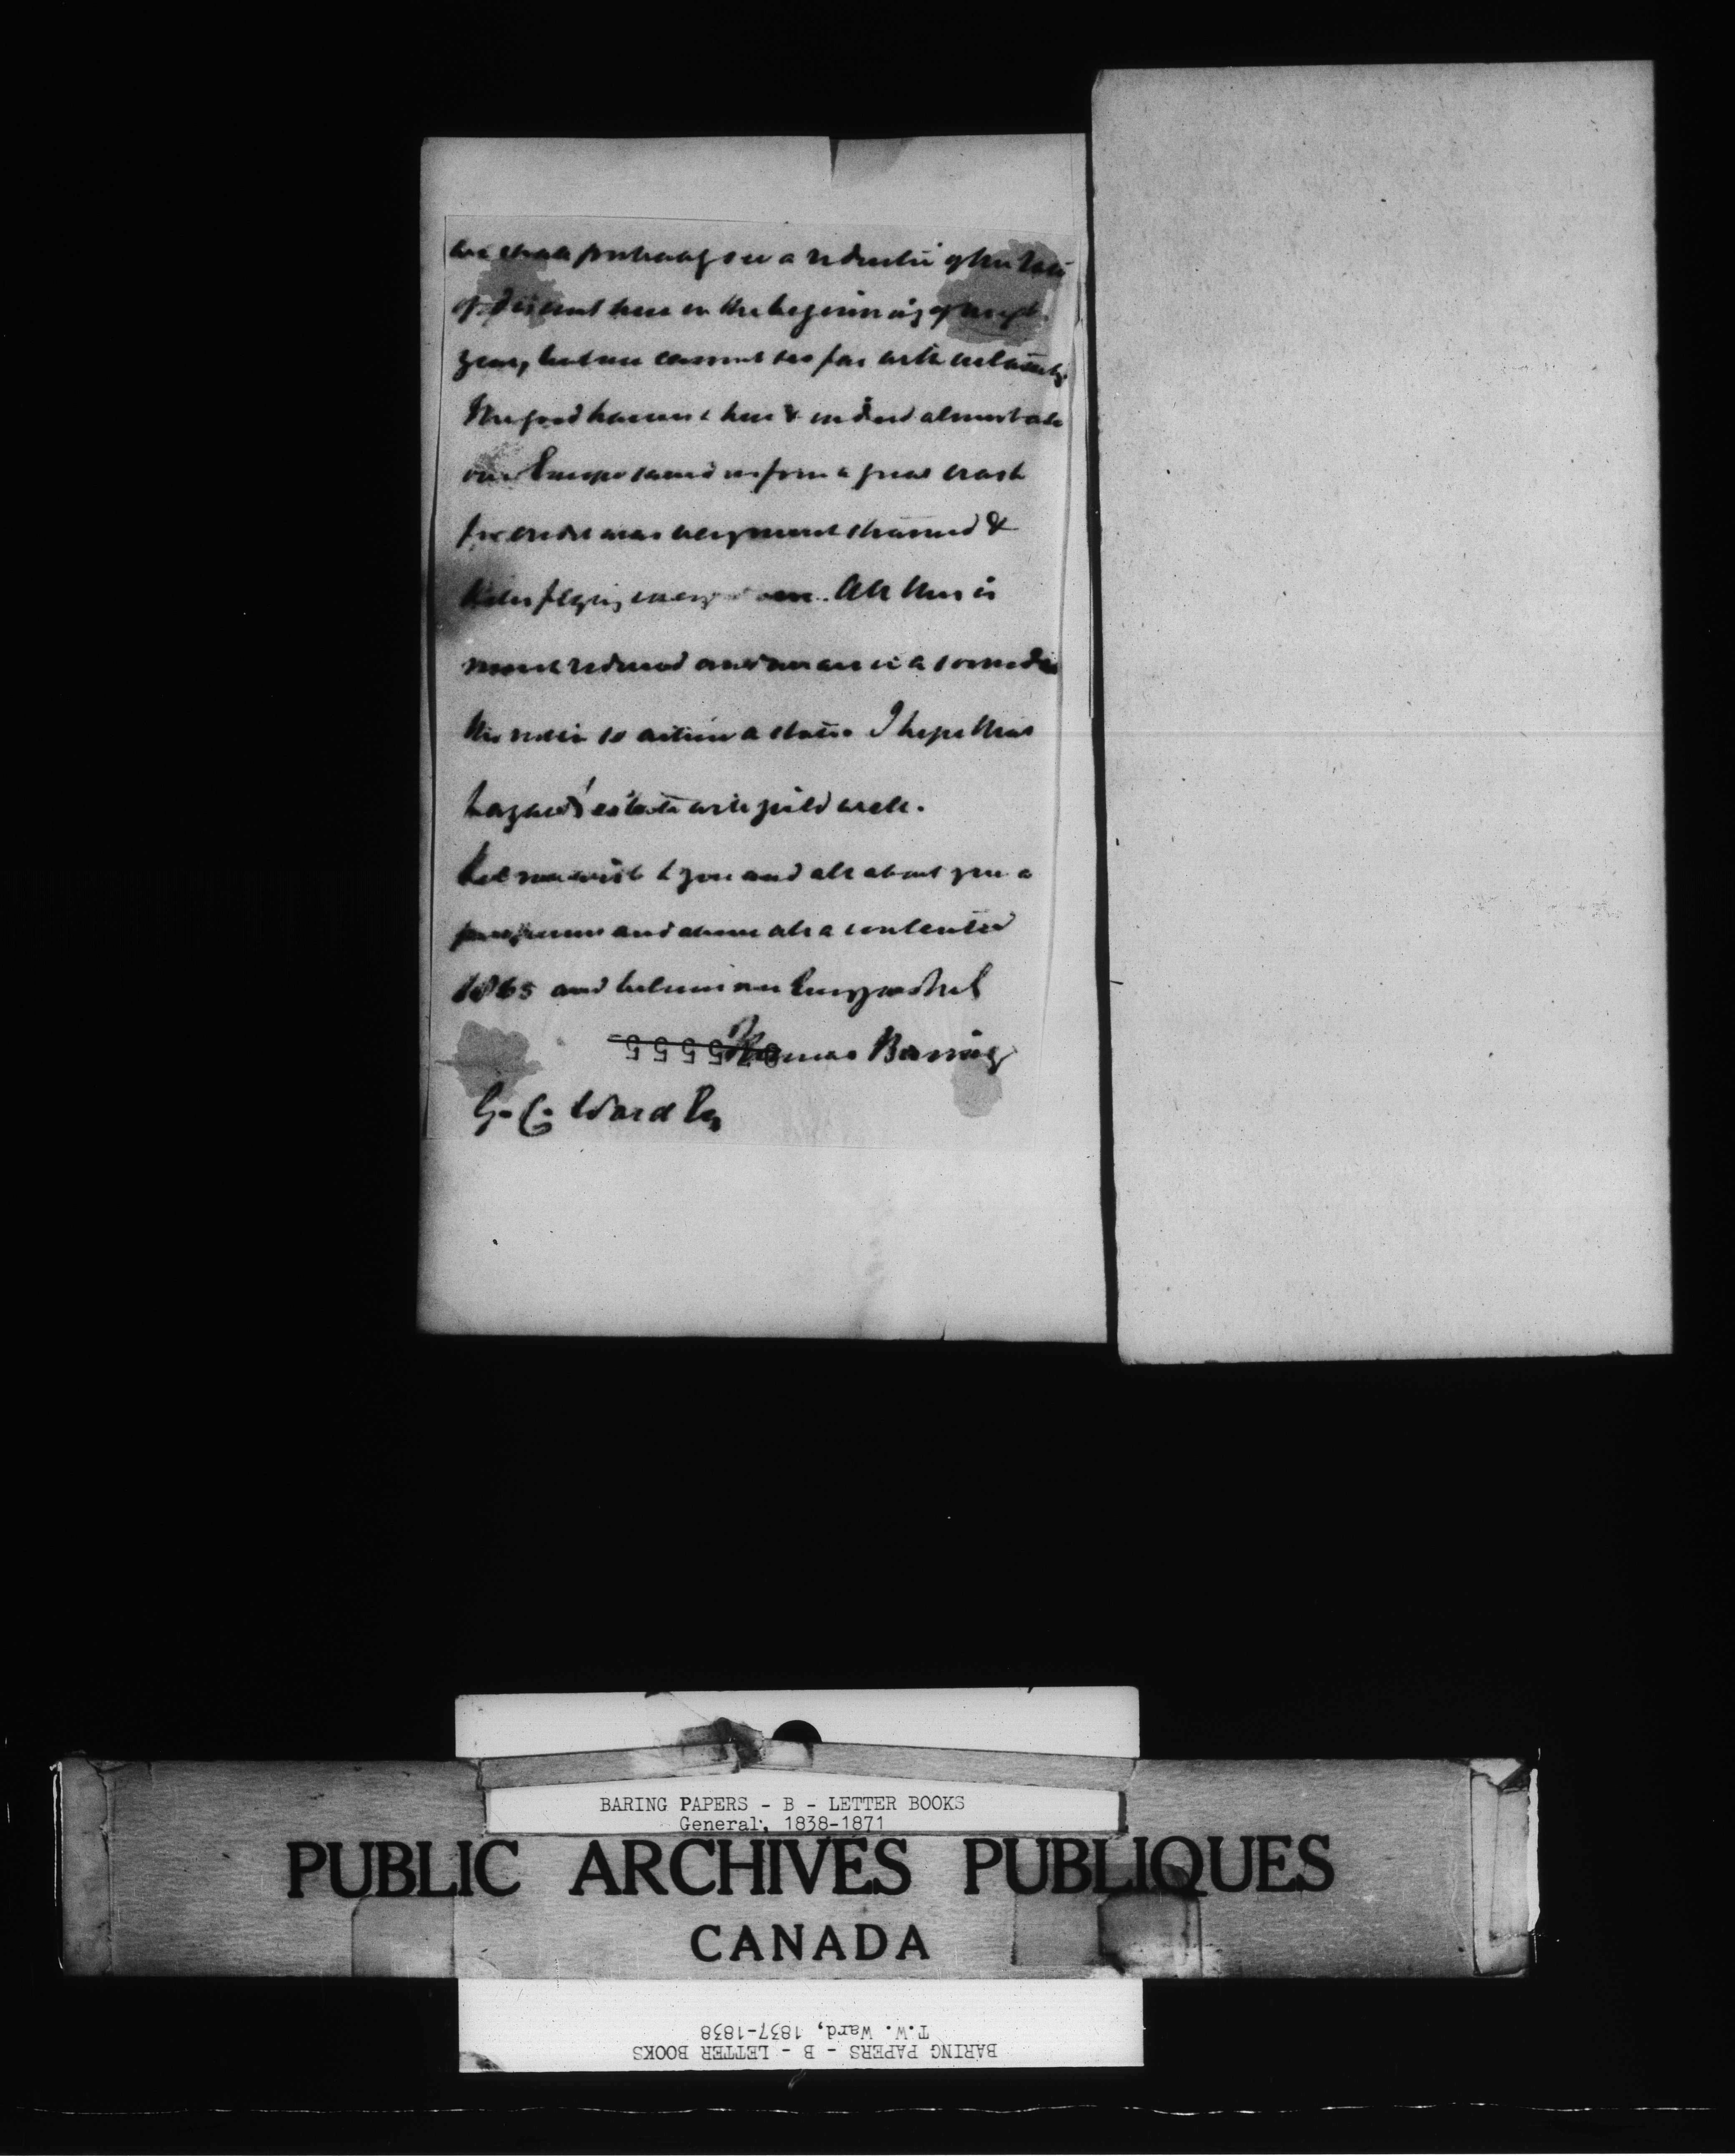 we shall probably see a reduction of the rate
of discount here in the beginning of next
year, but we cannot see far with certainty.
The good harvest here & indeed almost all
over Europe saved us from a great crash
for credit was very much strained &
kites flying every where. All this is
much reduced and we are in a sounder
tho not in so active a state. I hope that
estate will yield well.
Let me wish to you and all about you a
prosperous and above all a contented
1865 and believe me
Thomas Baring
575555
G. C. Ward Esq
BARING PAPERS - B - LETTER BOOKS
General, 1838-1871
PUBLIC ARCHIVES PUBLIQUES
CANADA
T.W. Ward, 1837-1838
BARING PAPERS - B - LETTER BOOKS